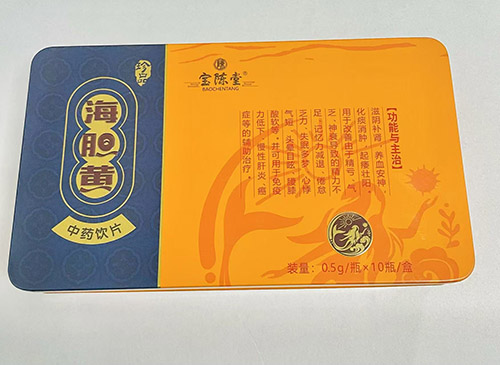 珍品
海胆黄
中药饮片
宝陈堂®
BAOCHENTANG
【功能与主治】
滋阴补肾，养血安神，
化痰消肿，起痿壮阳。
用于改善由于精亏、气
乏、神衰导致的精力不
足、记忆力减退、倦怠
乏力、失眠多梦、心悸
气短、头晕目眩、腰膝
酸软等。并可用于免疫
力低下、慢性肝炎、癌
症等的辅助治疗。
装量：0.5g/瓶×10瓶/盒